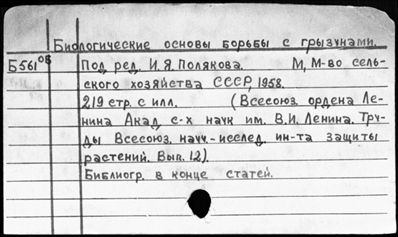 Биологические основы борьбы с грызунами.
Б561⁰⁵ Под ред. И.Я. Полякова. М, М-во сель-
ского хозяйства СССР, 1958.
219 стр. с илл. (Всесоюз. ордена Ле-
нина Акад с-х наук им. В.И. Ленина. Тру-
ды Всесоюз. науч.-исслед. ин-та защиты
растений. Вып. 12).
Библиогр. в конце статей.